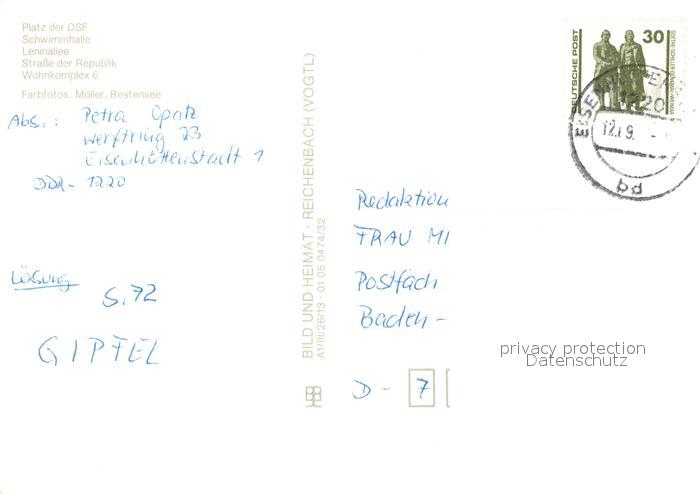 Platz der DSF
Schwimmhalle
Leninallee
Straße der Republik
Wohnkomplex 6
Farbfotos: Möller, Bestensee
Abs.: Petra Opatz
Werftring 23
Eisenhüttenstadt 1
DDR - 1220
Lösung
S. 72
GIPFEL
BILD UND HEIMAT · REICHENBACH (VOGTL)
A1/III/26/13 · 01 05 0474/32
DEUTSCHE POST
30
1220
bd
Redaktion
FRAU MI
Postfach
Baden -
D - 7
privacy protection
Datenschutz